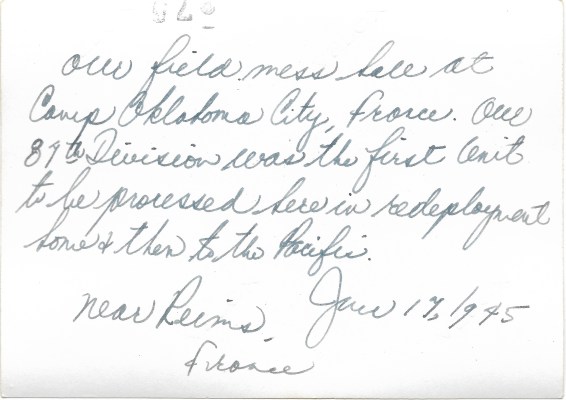 Our field mess hall at
Camp Oklahoma City, France. Our
87th Division was the first Unit
to be processed here in redeployment
home & then to the Pacific.
Near Reims, June 17, 1945
France